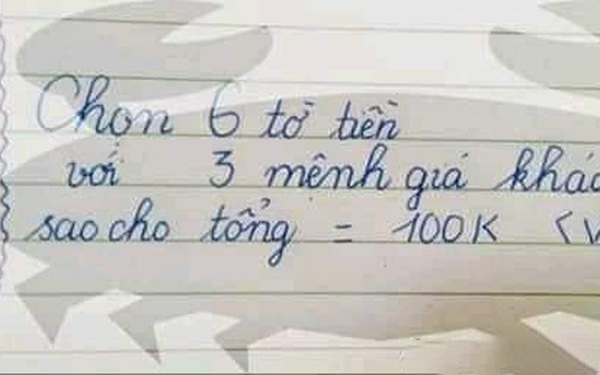 Chọn 6 tờ tiền
với 3 mệnh giá
sao cho tổng = 100K